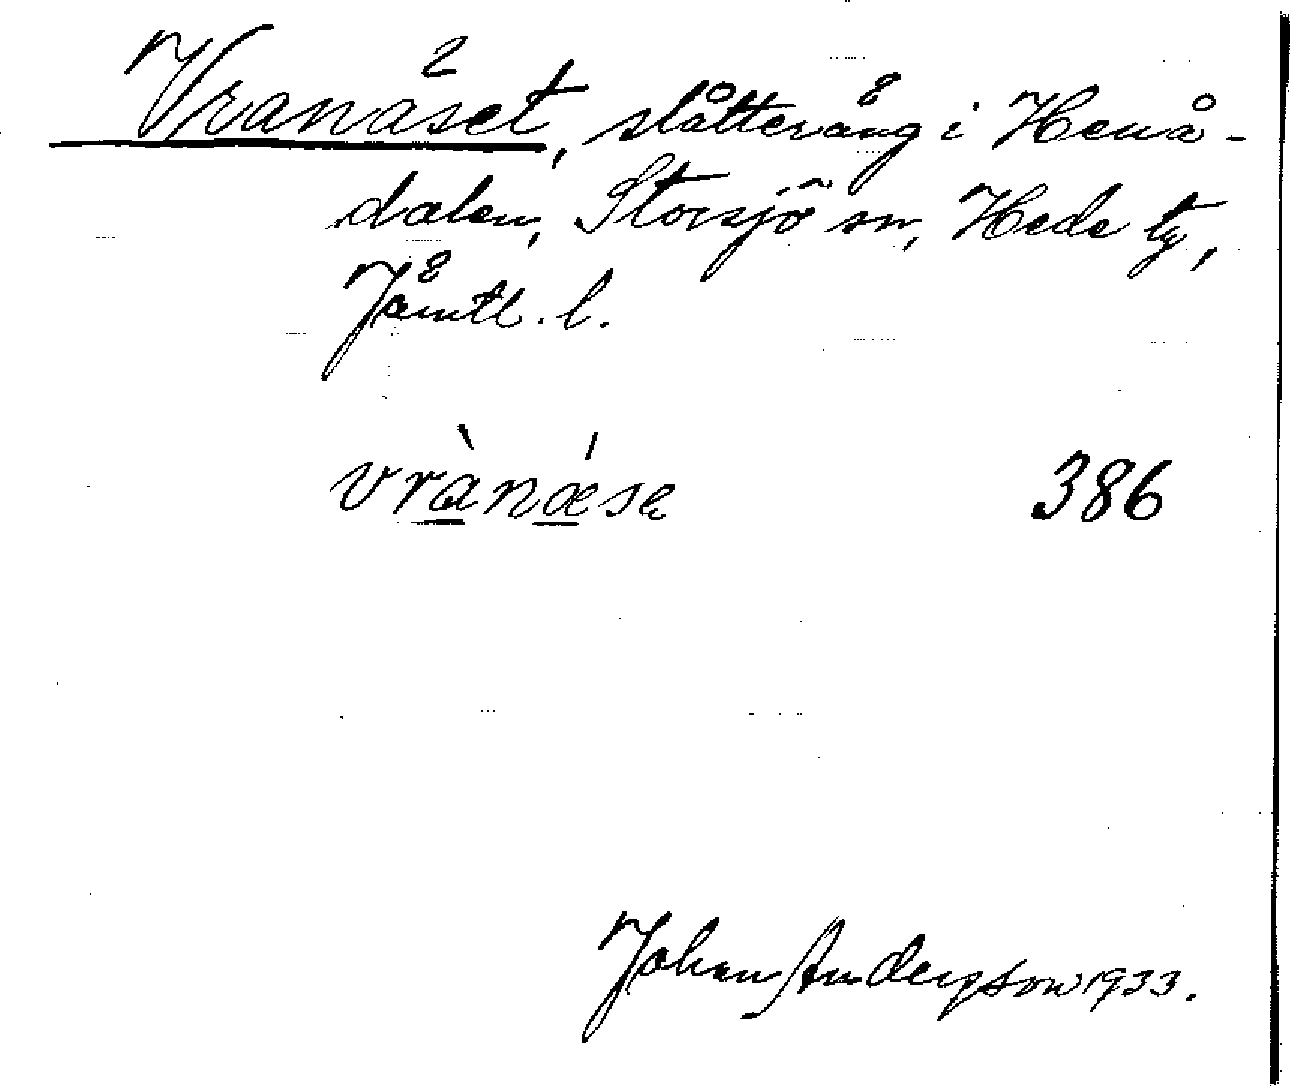 Vranäset, slåtteräng i Henå-
dalen, Storsjö sn, Hede tg,
Jämtl. l.
vrànǽsa 386
Johan Anderson 1933.